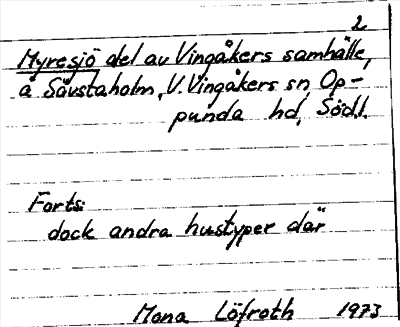 2
Myresjö del av Vingåkers samhälle,
å Sävstaholm, V. Vingåkers sn, Op-
punda hd, Södl.
Forts:
dock andra hustyper där
Mona Löfroth 1973